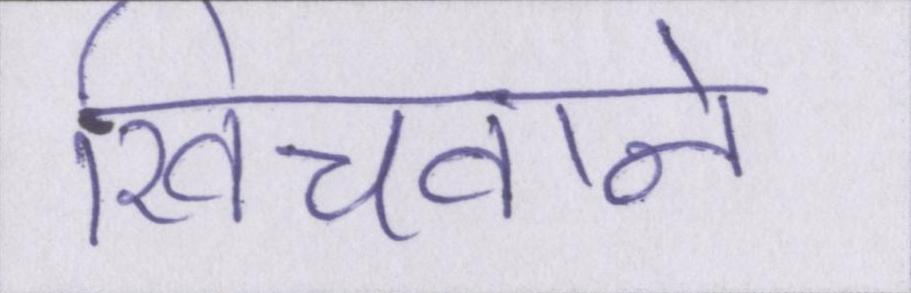 खिचवाने